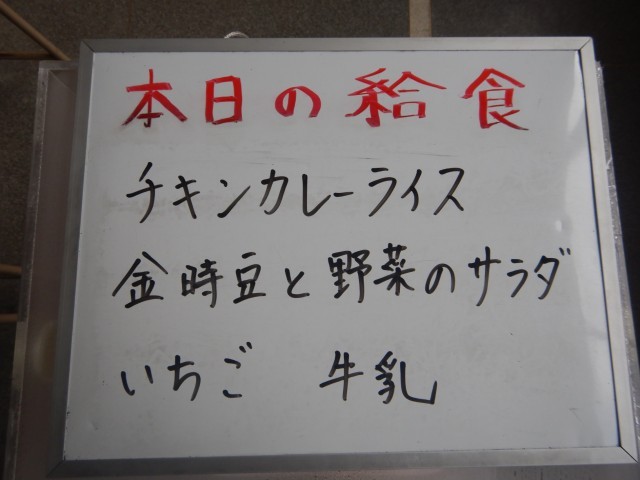 本日の給食
チキンカレーライス
金時豆と野菜のサラダ
いちご 牛乳